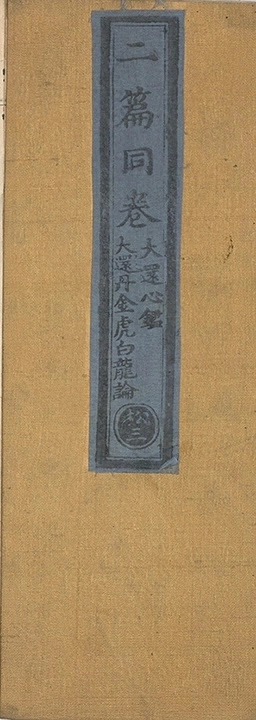 二篇同卷
大還心鑑
大還丹金虎白龍論
松三